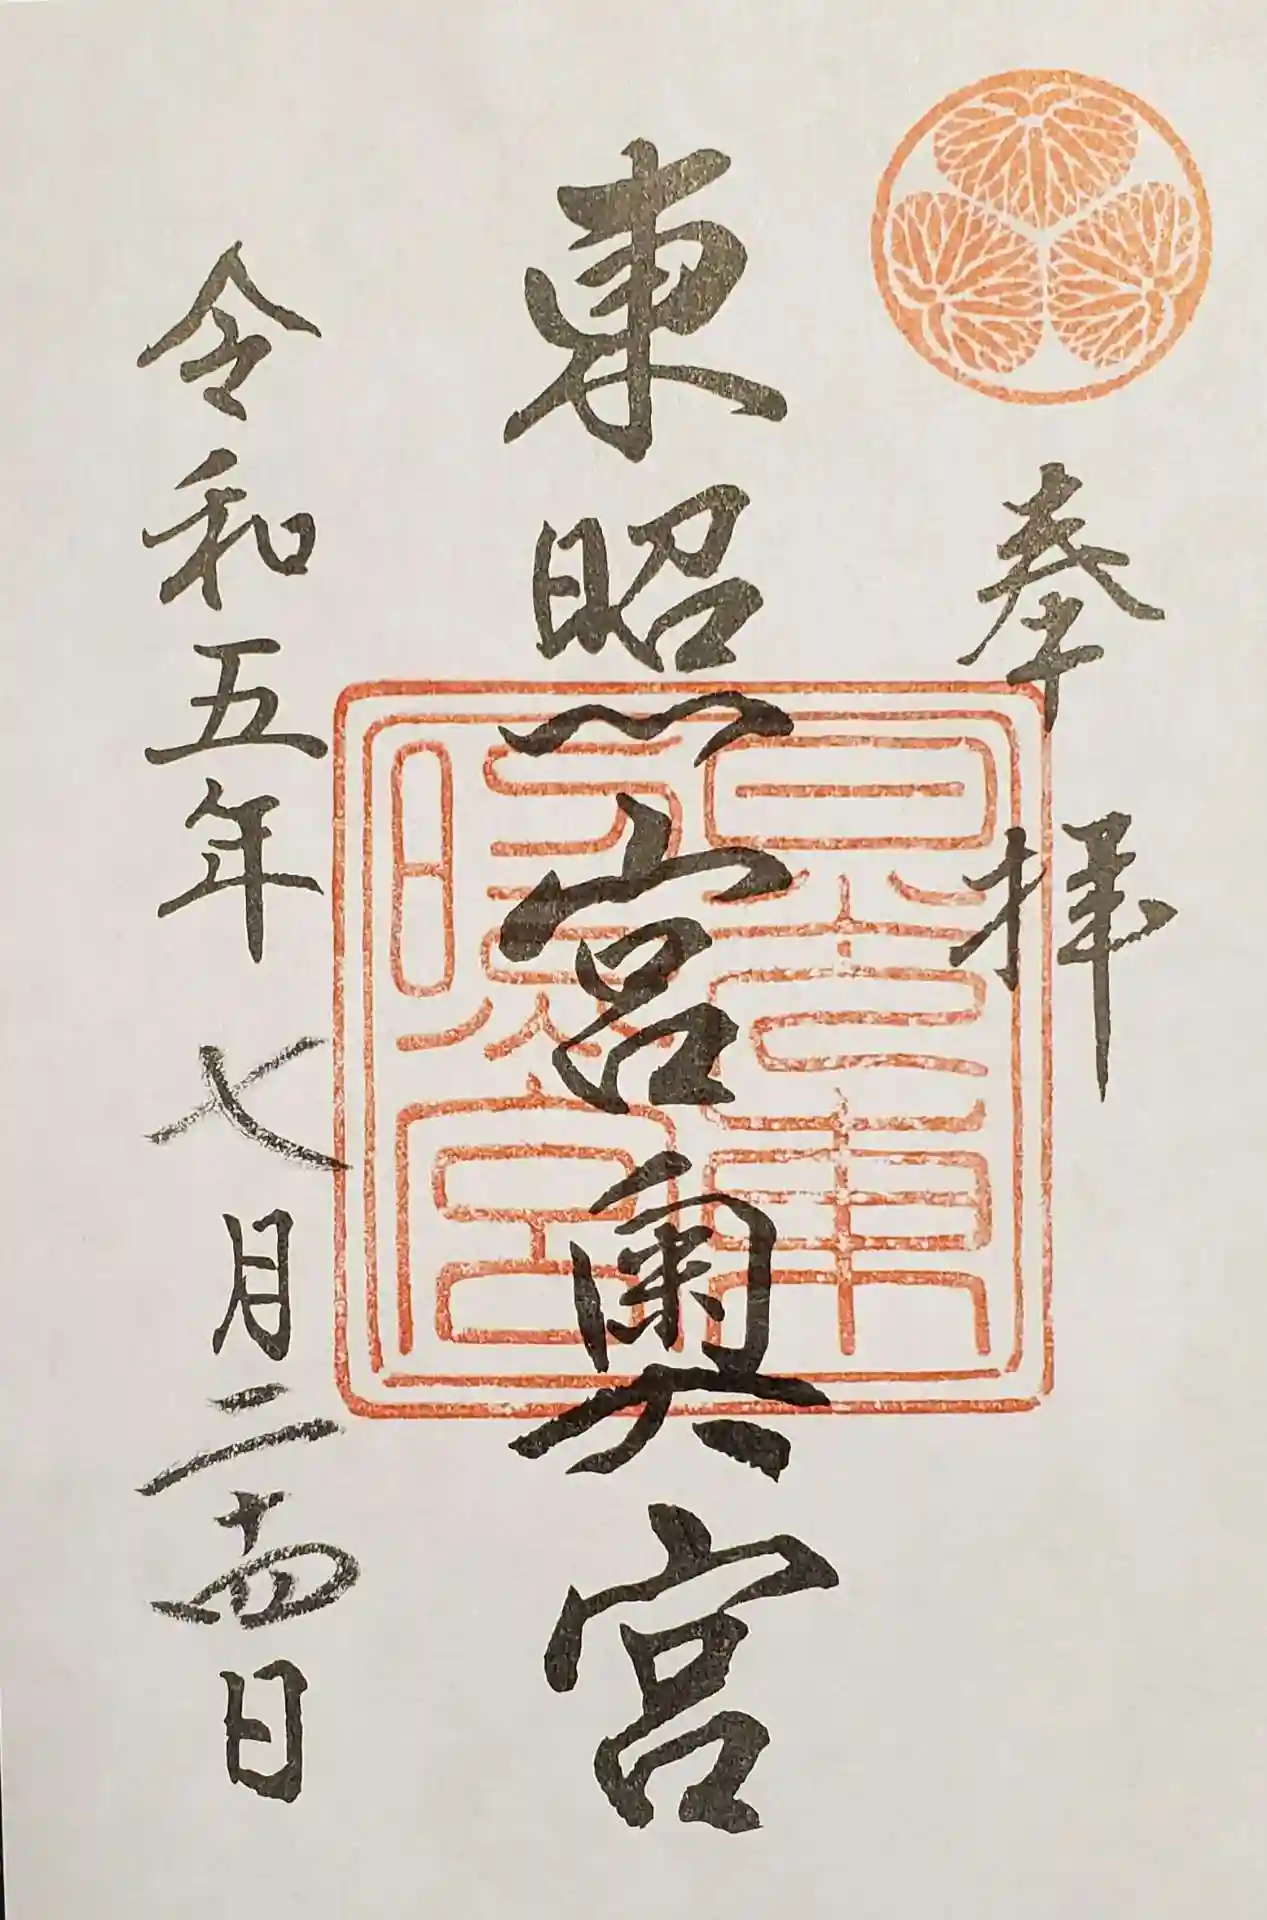 奉拝
東照宮奥宮
令和五年七月二十四日
日光東
照宮